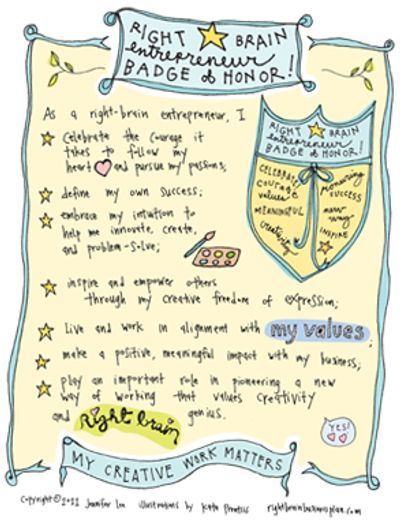 RIGHT BRAIN
entrepreneur
BADGE of HONOR!
As a right-brain entrepreneur, I
Celebrate the courage it
takes to follow my
heart and pursue my passions;
define my own success;
embrace my intuition to
help me innovate, create,
and problem-solve;
inspire and empower others
through my creative freedom of expression;
live and work in alignment with my values;
make a positive, meaningful impact with my business;
play an important role in pioneering a new
way of working that values creativity
and Right brain genius.
RIGHT BRAIN
entrepreneur
BADGE of HONOR!
CELEBRATE
courage
values
MEANINGFUL
creativity
pioneering
SUCCESS
new
way
INSPIRE
YES!
MY CREATIVE WORK MATTERS
Copyright © 2011 Jennifer Lee illustrations by Kate Prentiss rightbrainbusinessplan.com